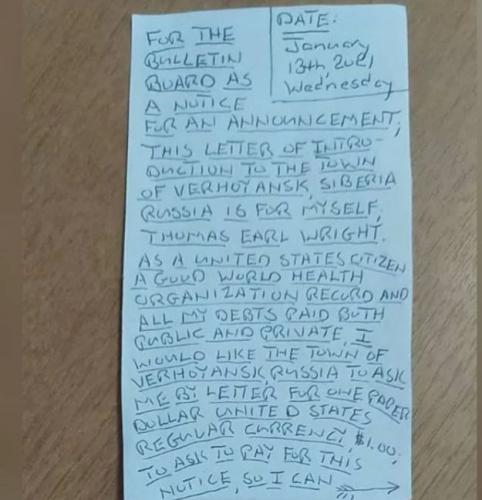 FOR THE
BULLETIN
BOARD AS
A NOTICE
DATE:
January
13th, 2021
Wednesday
FOR AN ANNOUNCEMENT;
THIS LETTER OF INTRO-
DUCTION TO THE TOWN
OF VERHOYANSK, SIBERIA
RUSSIA IS FOR MYSELF,
THOMAS EARL WRIGHT.
AS A UNITED STATES CITIZEN
A GOOD WORLD HEALTH
ORGANIZATION RECORD AND
ALL MY DEBTS PAID BOTH
PUBLIC AND PRIVATE, I
WOULD LIKE THE TOWN OF
VERHOYANSK, RUSSIA TO ASK
ME BY LETTER FOR ONE PAPER
DOLLAR UNITED STATES
REGULAR CURRENCY, $1.00.
TO ASK TO PAY FOR THIS
NOTICE, SO I CAN